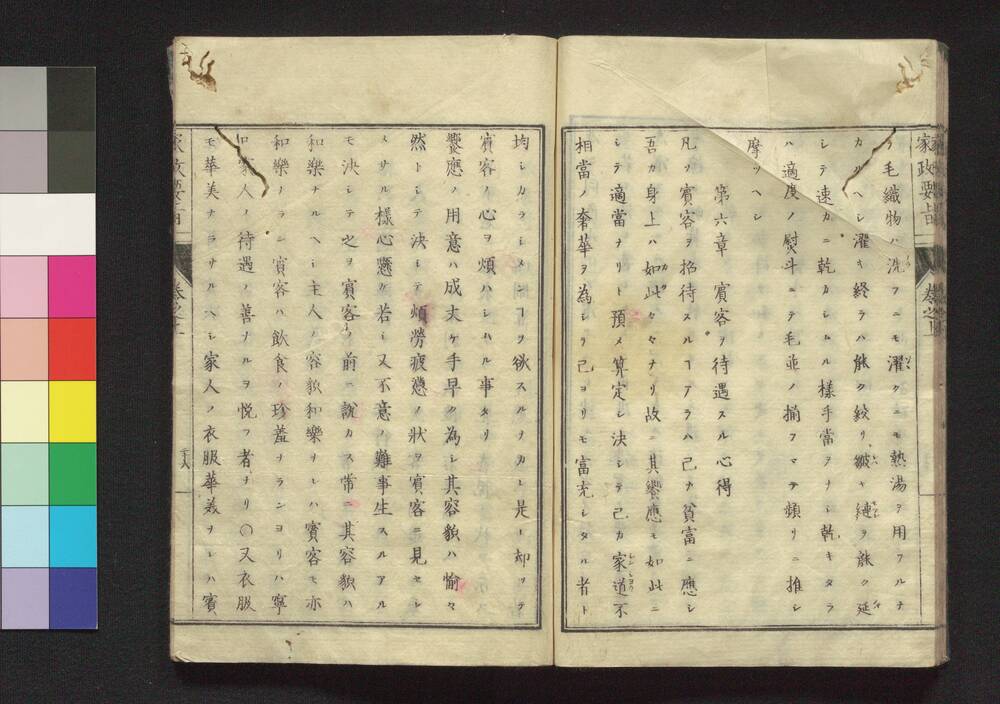 毛織物ハ洗フニモ濯クニモ熱湯ヲ用フルナ
カルヘシ濯キ終ラハ能ク絞リ皺ヤ縺ヲ能ク延
シテ速カニ乾カシムル様手當ヲナシ乾キタラ
ハ適度ノ熨斗ニテ毛並ノ揃フマテ頻リニ推シ
摩ツヘシ
第六章 賓客ヲ待遇スル心得
凡ソ賓客ヲ招待スルヿアラハ己カ貧富ニ應シ
吾カ身上ハ如此々々ナリ故ニ其饗應モ如此ニ
シテ適當ナリト預メ算定シ決シテ己カ家道不
相當ノ奢華ヲ為シリ己ヨリモ富充シタル者ト
均シカラシメンヿヲ欲スルナカレ是レ却ツテ
賓客ノ心ヲ煩ハシムル事タリ
饗應ノ用意ハ成丈ケ手早ク為シ其容貌ハ愉々
然トシテ決シテ煩勞疲憊ノ狀ヲ賓客ニ見セシ
メサル様心懸ケ若シ又不意ノ難事生スルアル
モ決シテ之ヲ賓客ノ前ニ說カス常ニ其容貌ハ
和樂ナルヘシ主人ノ容貌和樂ナレハ賓客モ亦
和樂ノラン賓客ハ飲食ノ珍羞ナランヨリハ寧
ロ家人ノ待遇ノ善ナルヲ悦フ者ナリ〇又衣服
モ華美ナラサルヘシ家人ノ衣服華美ナレハ賓
家政要旨
卷之上